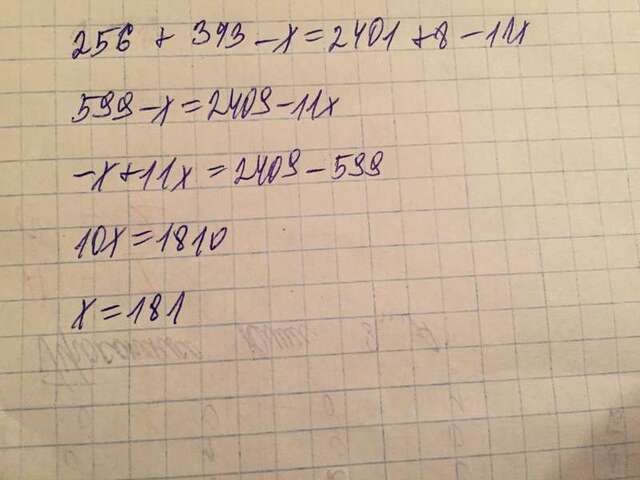 256 + 343 - x = 2401 + 8 - 11x
599 - x = 2409 - 11x
-x + 11x = 2409 - 599
10x = 1810
x = 181